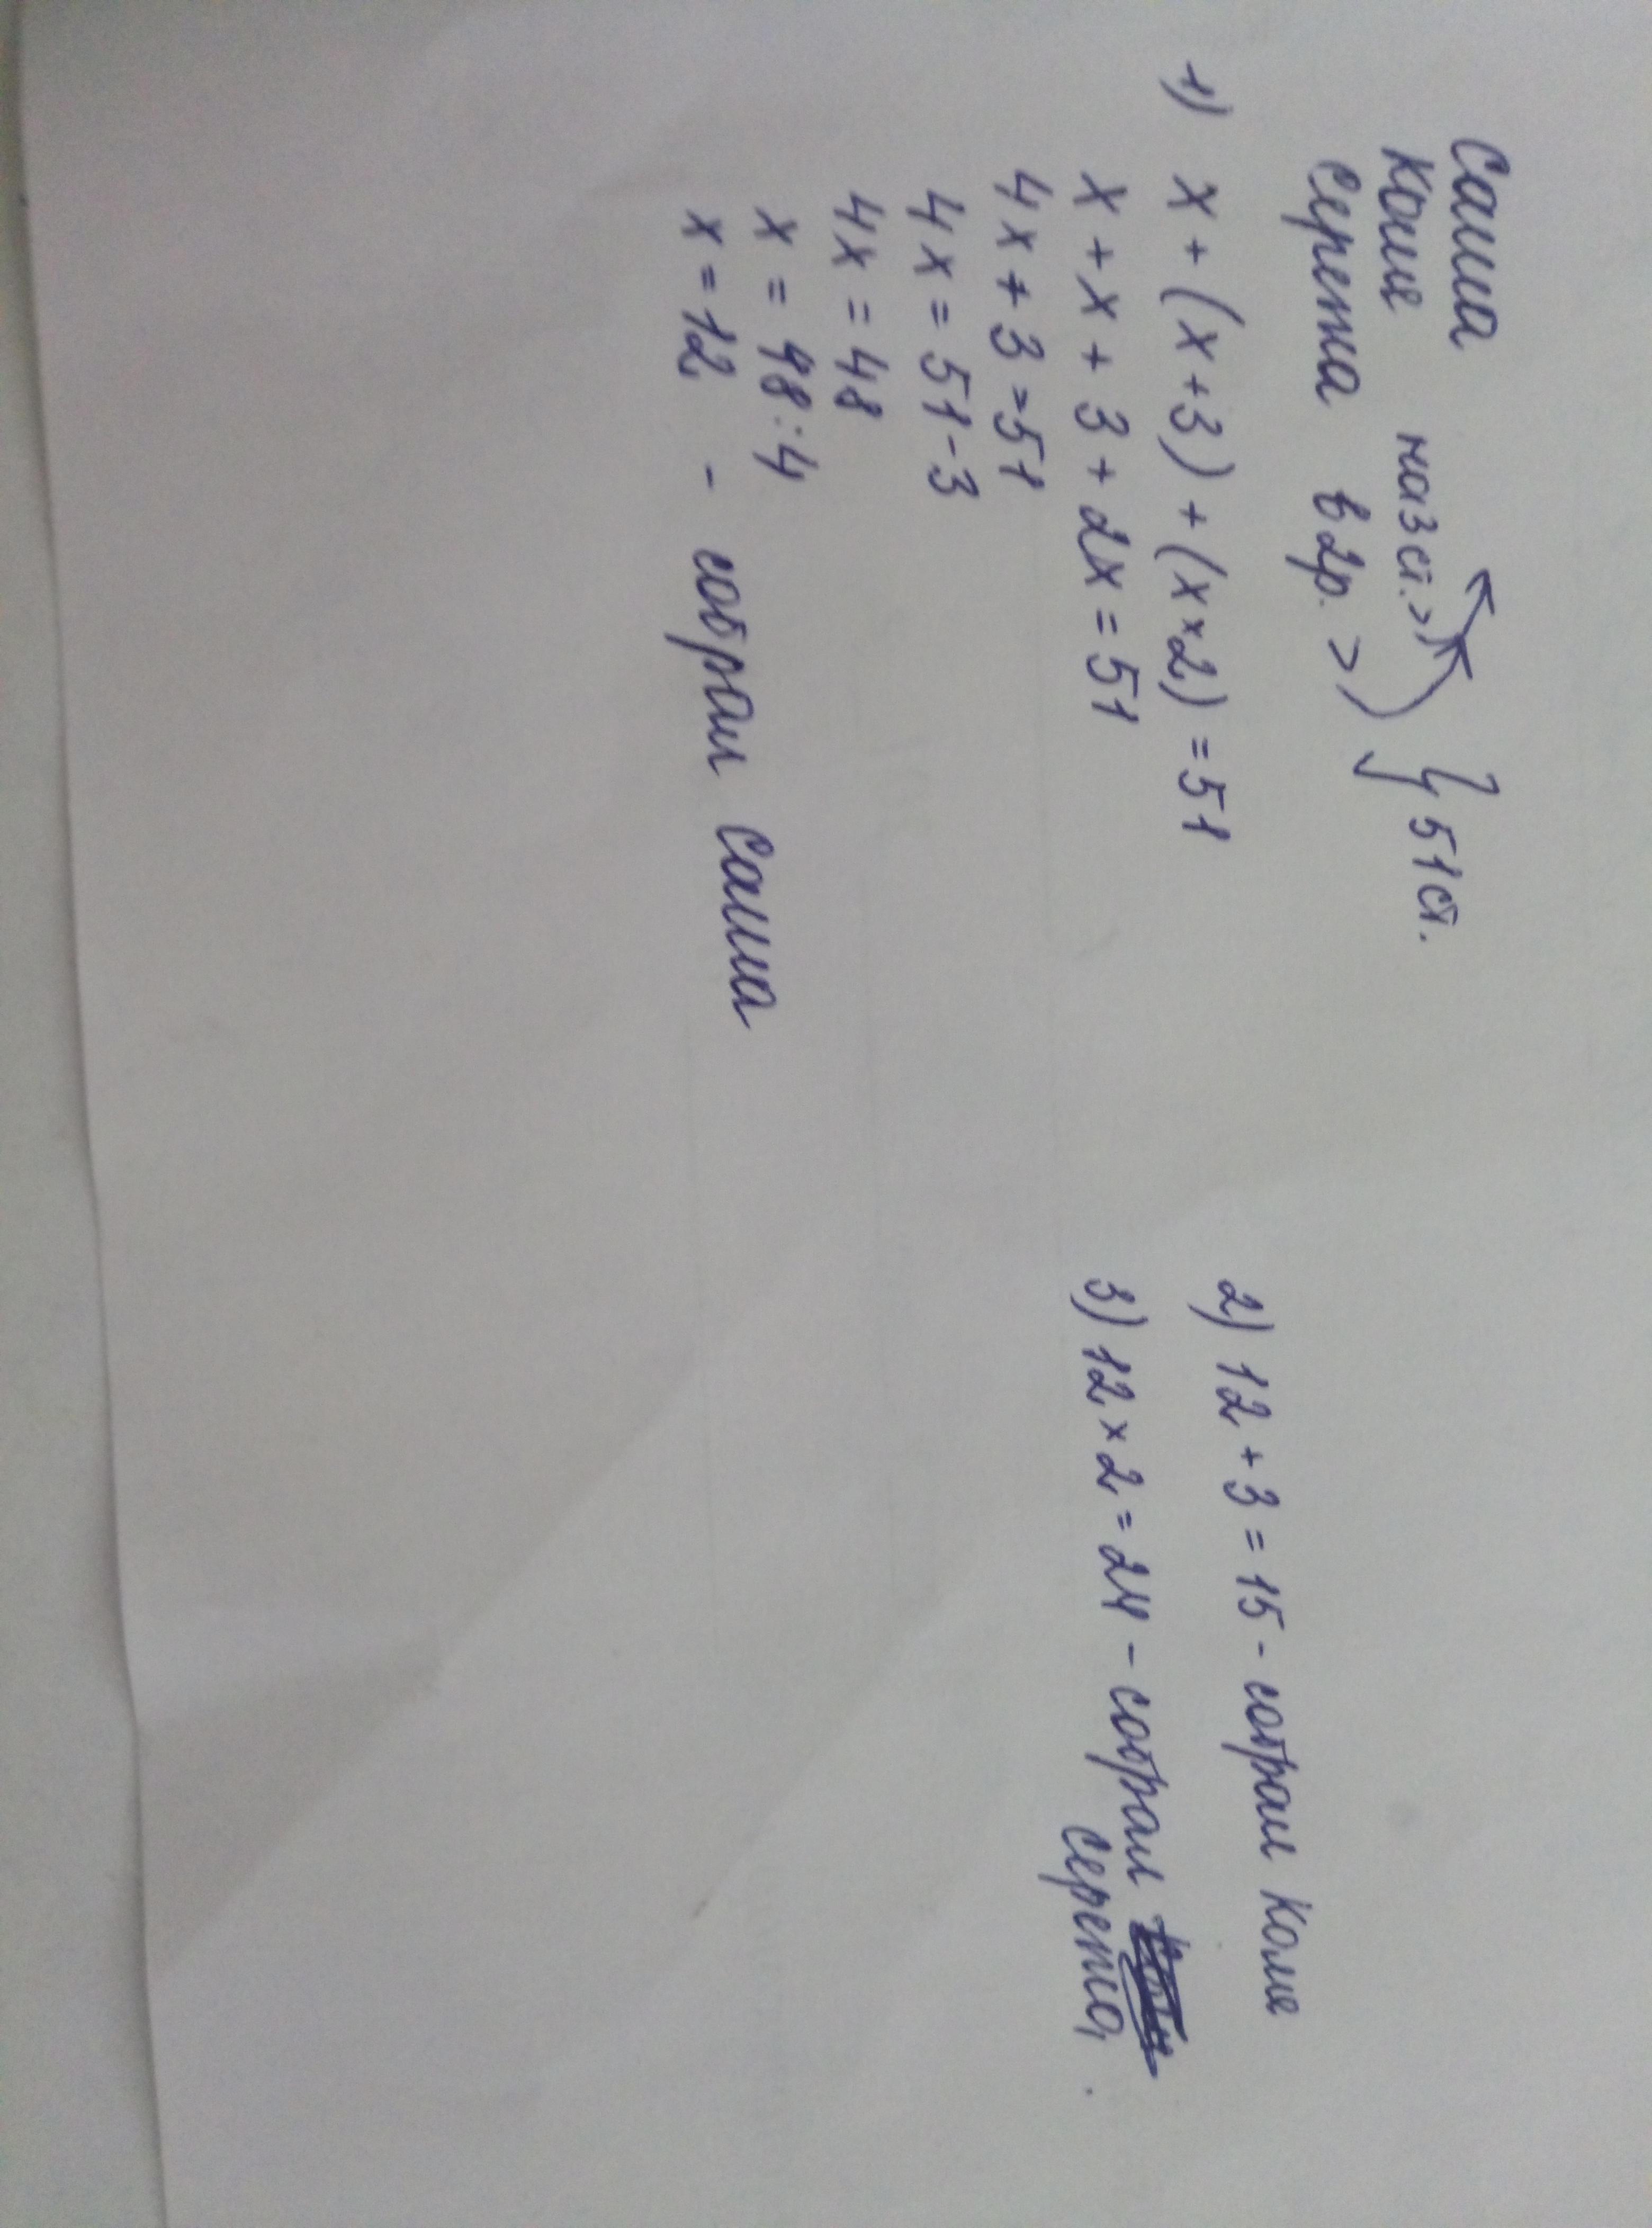 Саша
Коля на 3 ст. > } 51 ст.
Сережа в 2 р. >
1) x + (x+3) + (x×2) = 51
x + x + 3 + 2x = 51
4x + 3 = 51
4x = 51-3
4x = 48
x = 48:4
x = 12 - собрал Саша
2) 12 + 3 = 15 - собрал Коля
3) 12 × 2 = 24 - собрал
Сережа.